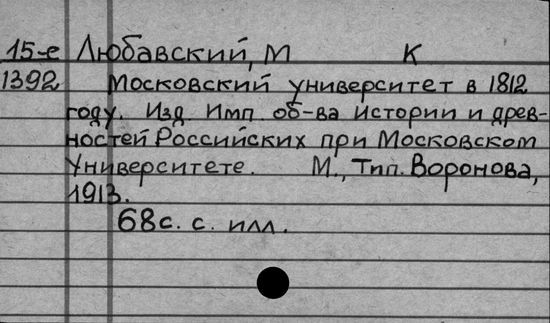 15-е Любавский, М К
1392 Московский университет в 1812
году. Изд Имп об-ва истории и древ-
ностей Российских при Московском
Университете. М., Тип. Воронова,
1913.
68 с. с. илл.